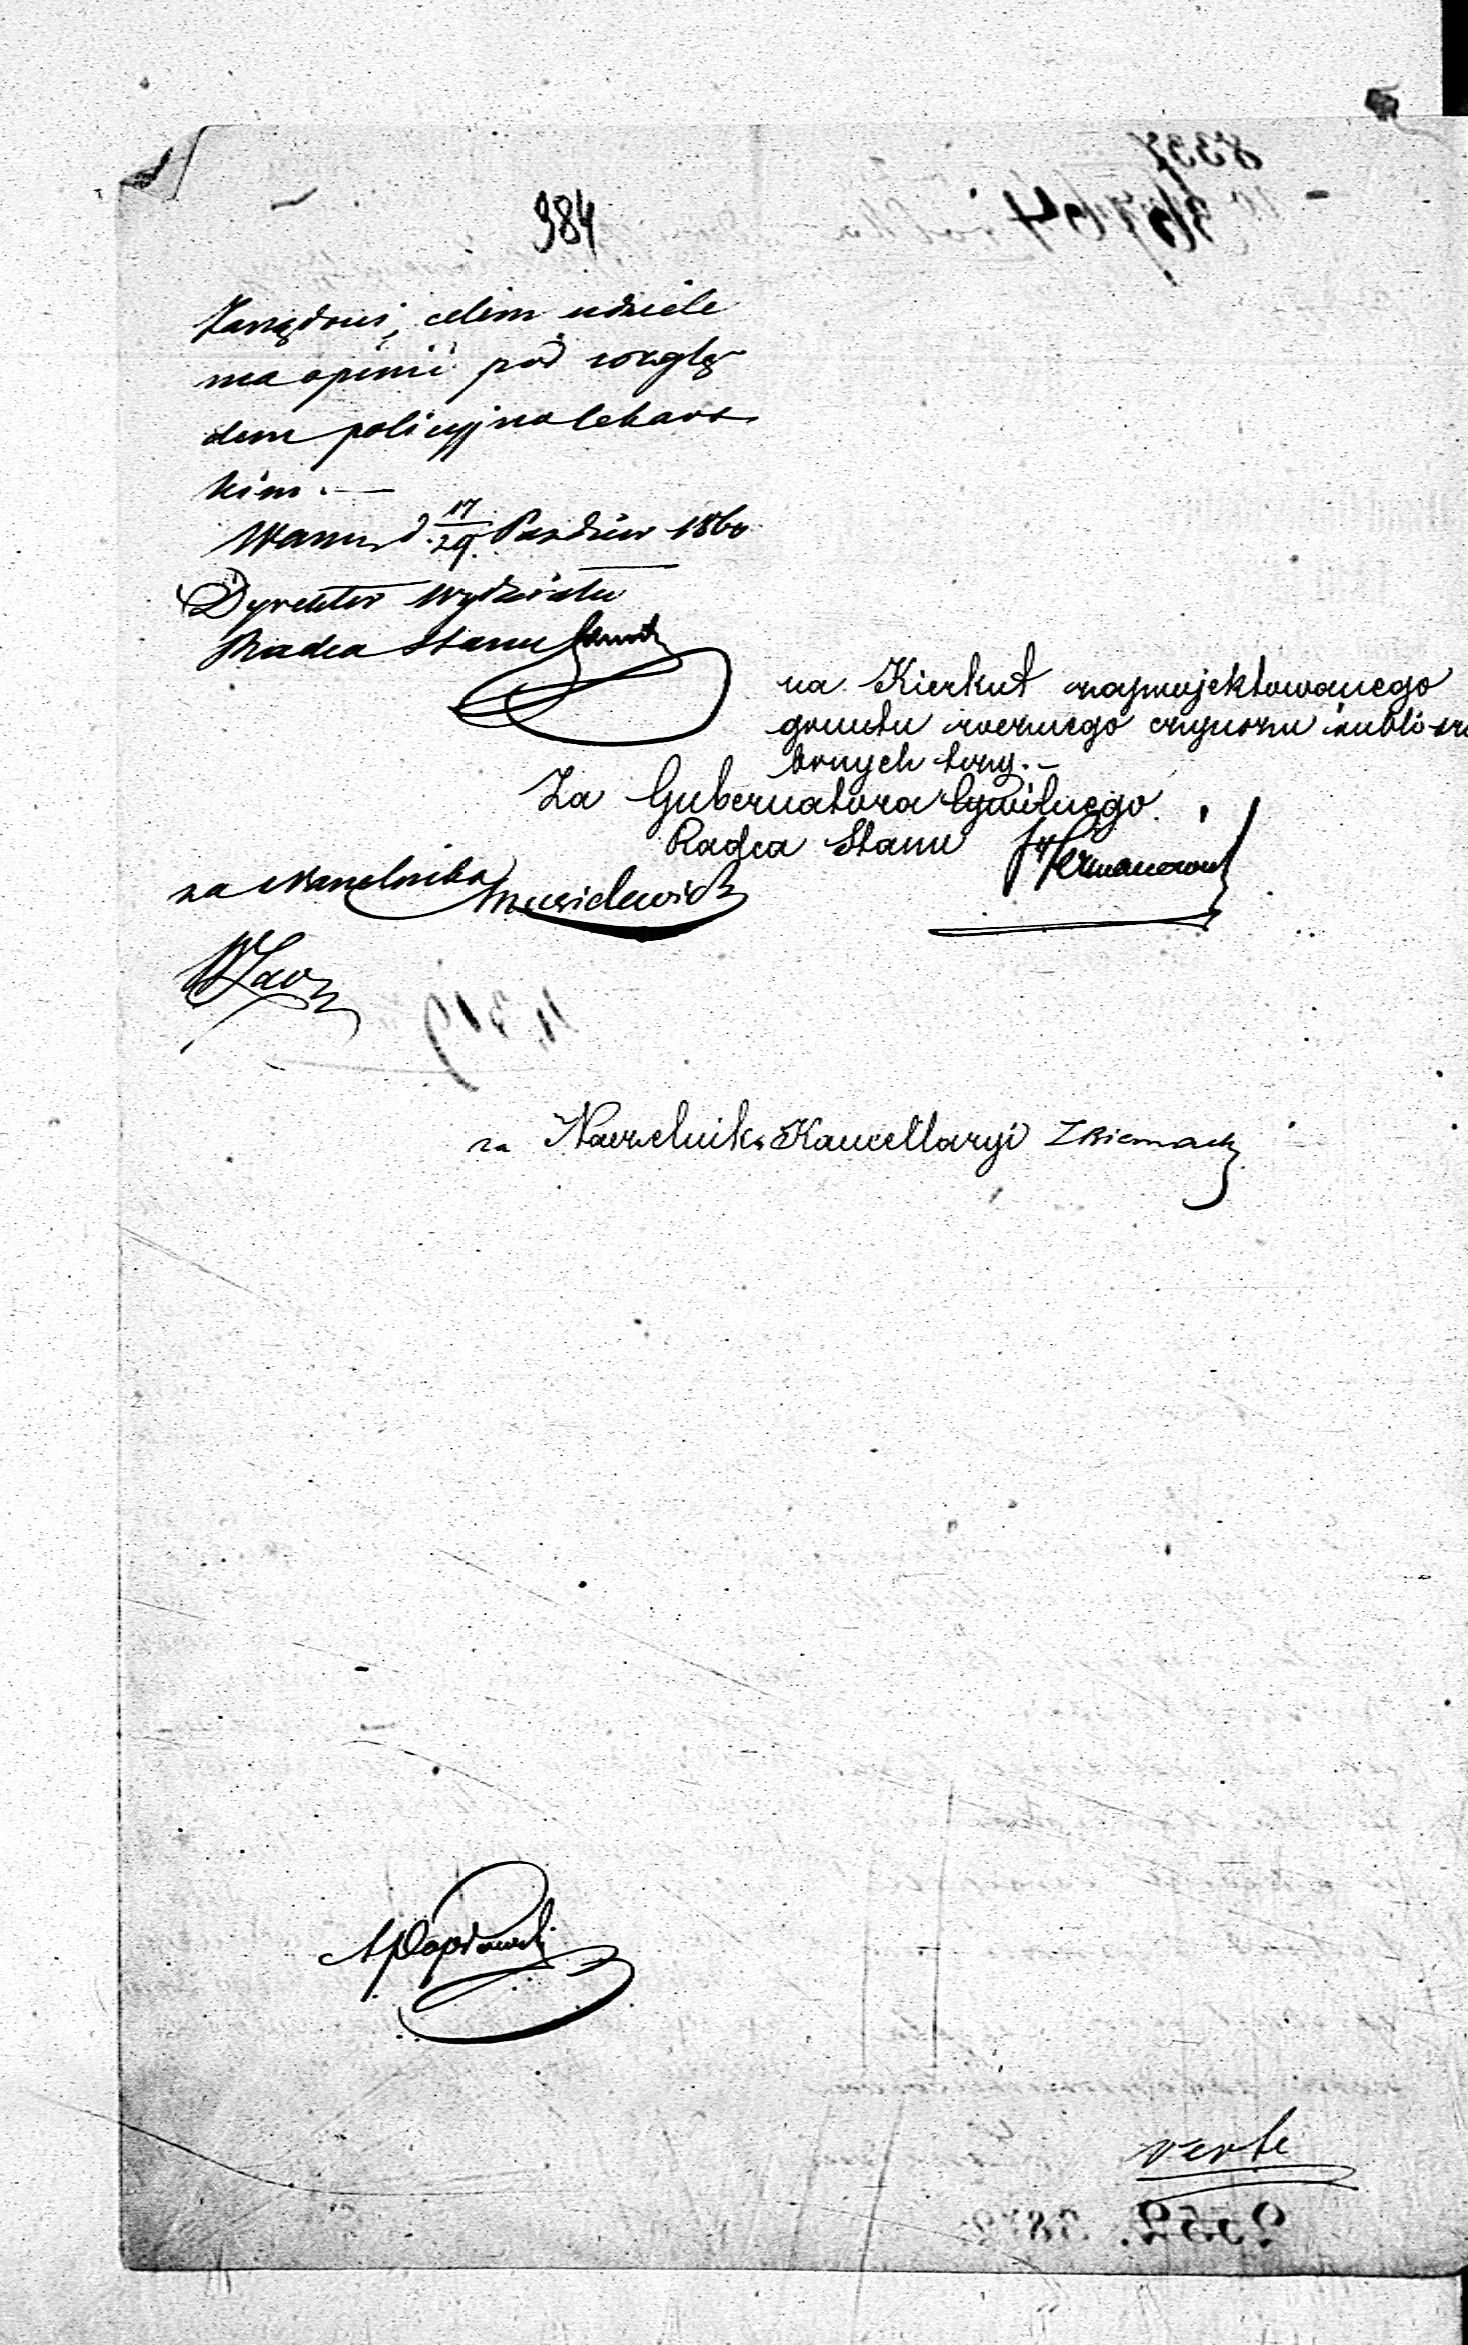 984
Zarządowi, celem udziele
nia opinii pod wzglę
dem policyjno lekars
kim. —
Warsz. d. 17/29 Paździer 1860
Dyrektor Wydziału
Radca Stanu
na Kierkut zaprojektowanego
gruntu rocznego czynszu rubli sre
brnych trzy. —
Za Gubernatora Cywilnego
Radca Stanu
za Naczelnika
za Naczelnika Kancellaryi
verte